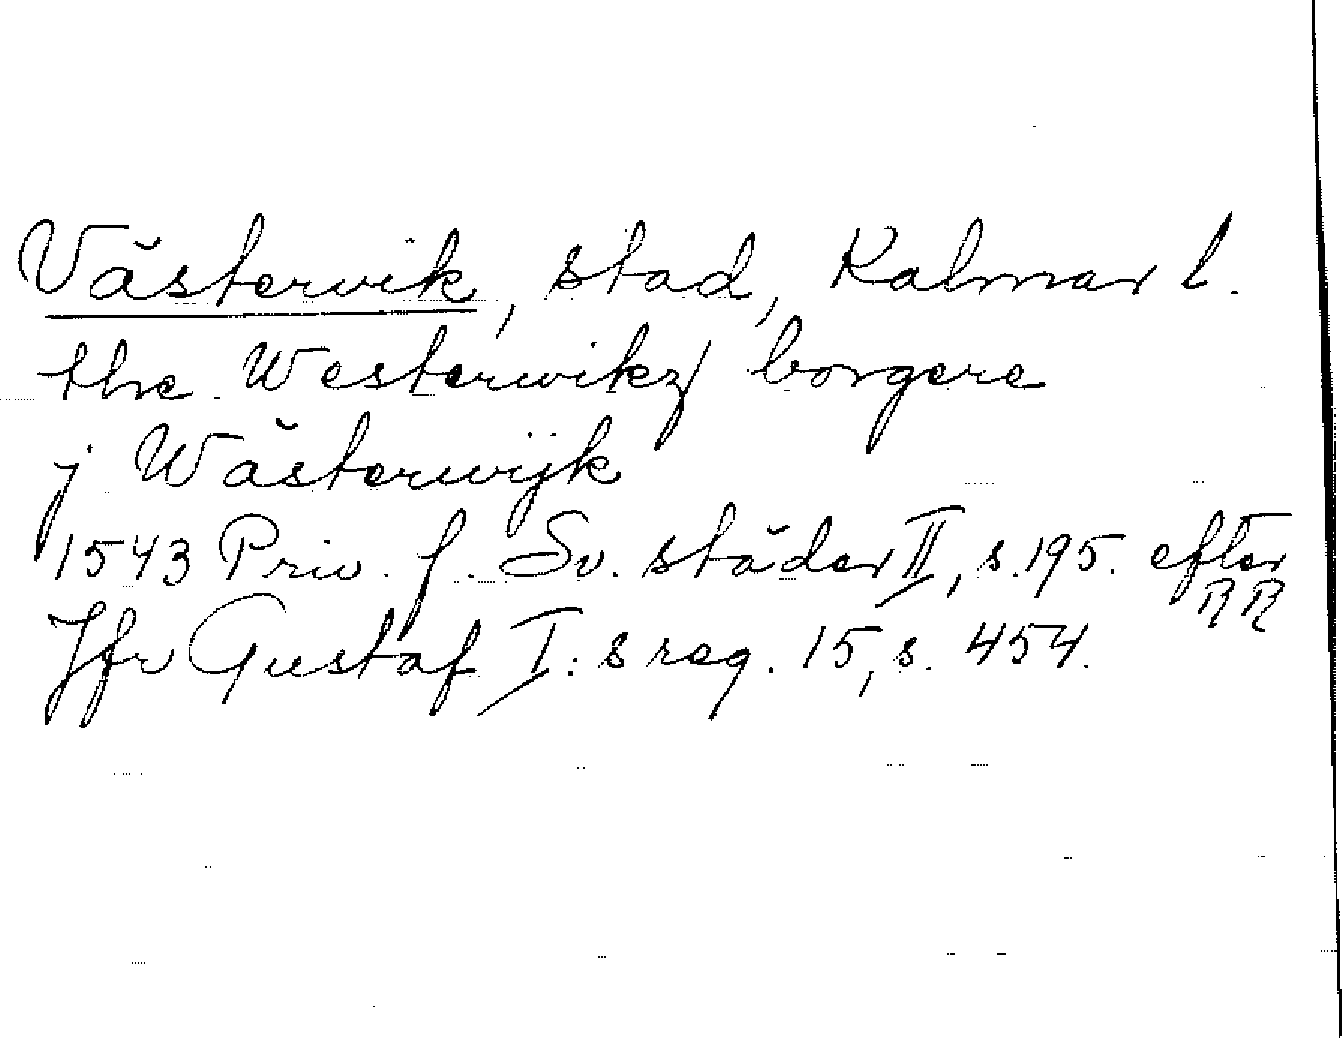 Västervik, stad, Kalmar l.
the Westerwikz borgere
j Wästerwijk
1543 Priv. f. Sv. städer II, s. 195. efter
RR
Jfr Gustaf I:s reg. 15, s. 454.